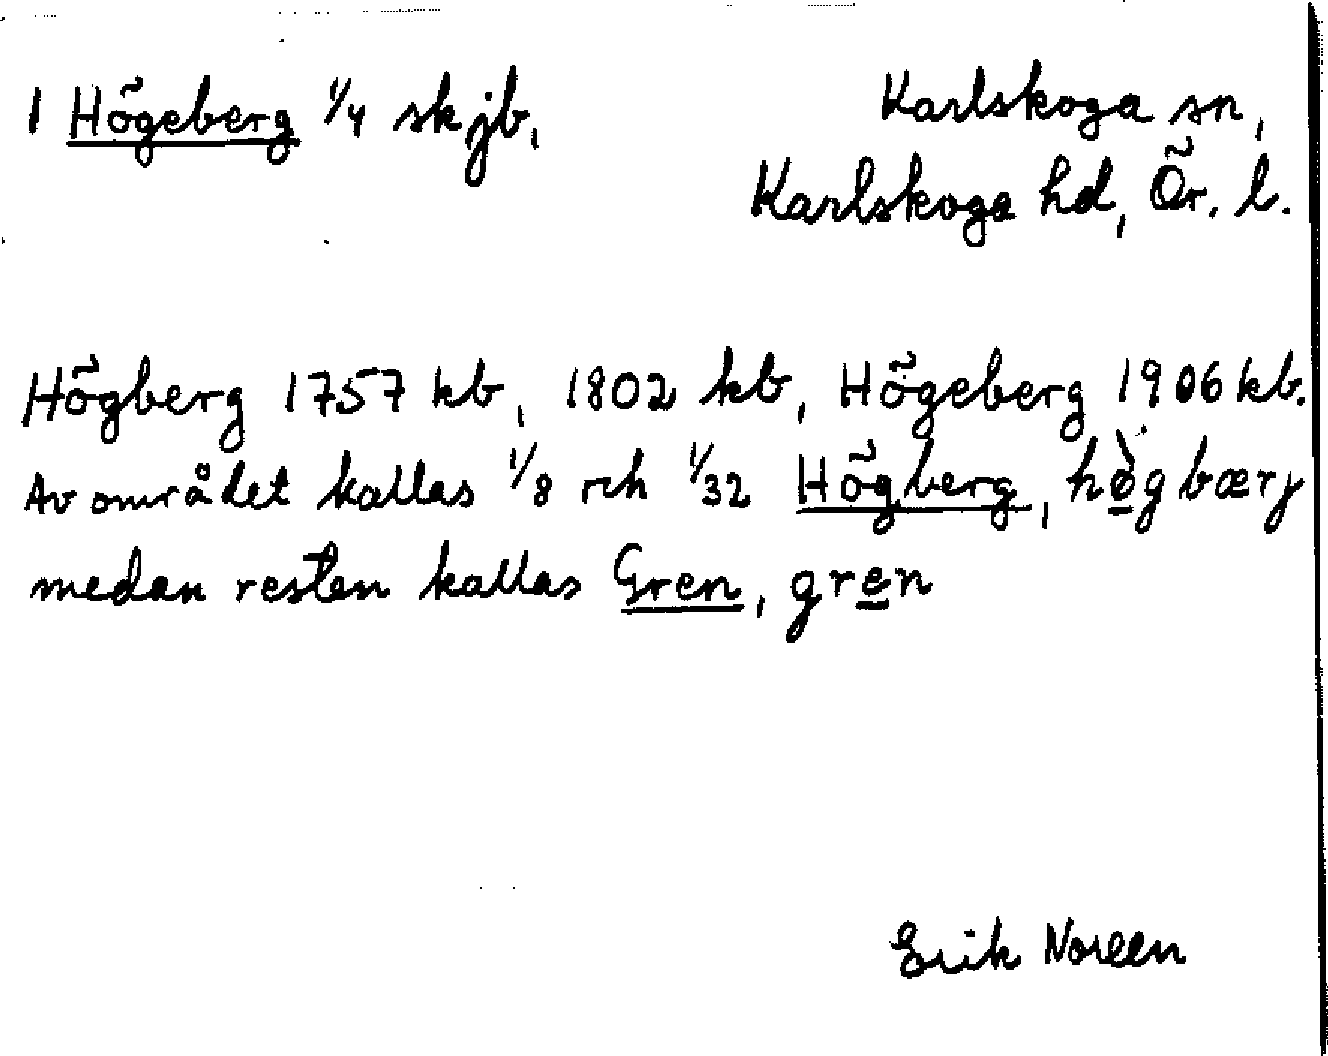 1 Högeberg 1/4 skjb,
Karlskoga sn,
Karlskoga hd, Ör. l.
Högberg 1757 kb, 1802 kb, Högeberg 1906 kb.
Av området kallas 1/8 och 1/32 Högberg, hø̀gbærj
medan resten kallas Gren, gren
Erik Noreen